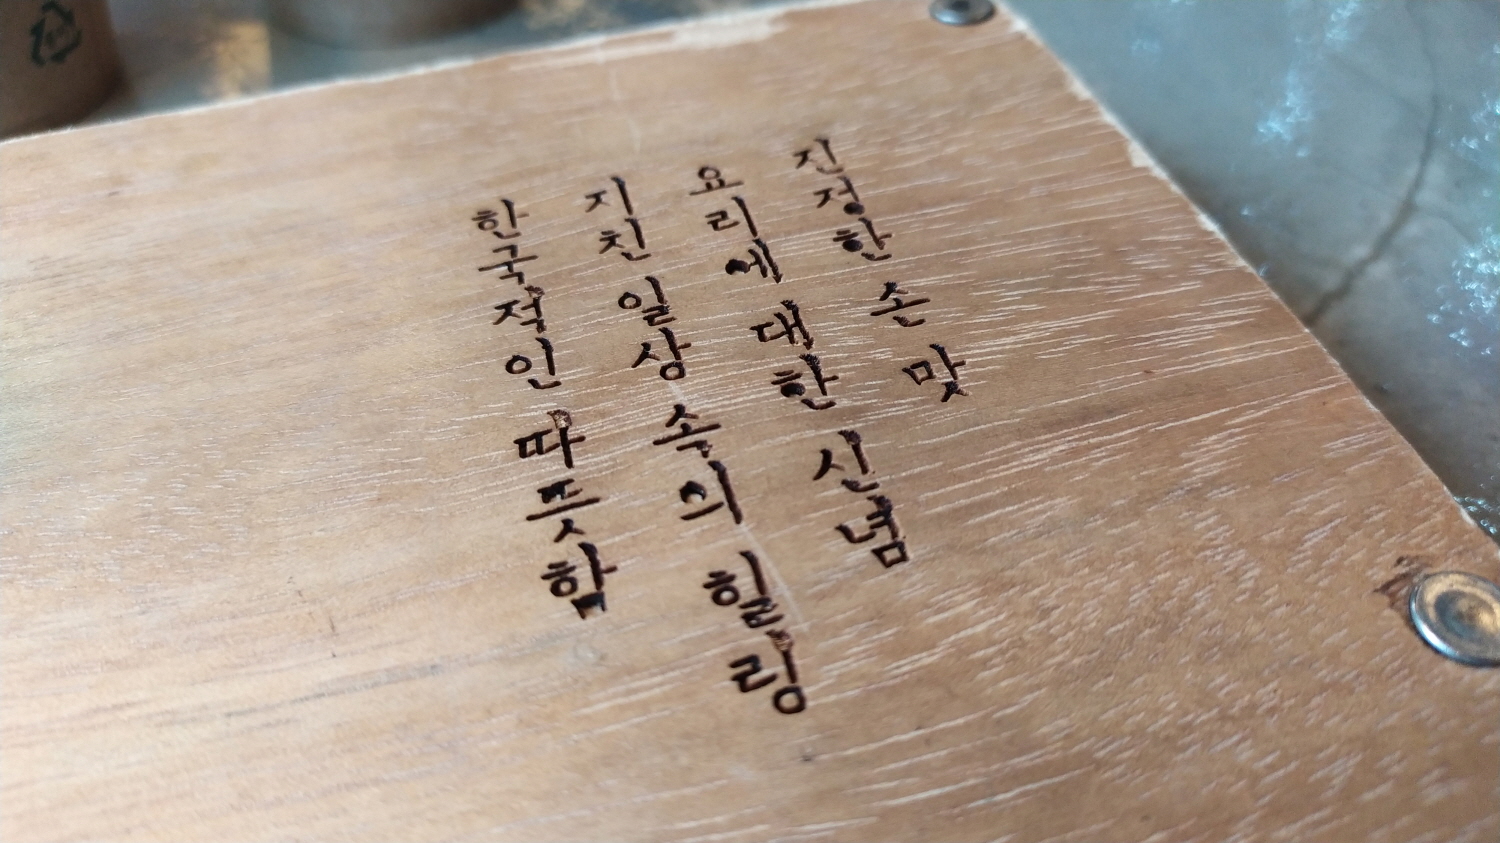 진정한 손 맛
요리에 대한 신념
지친 일상 속의 힐링
한국적인 따뜻함